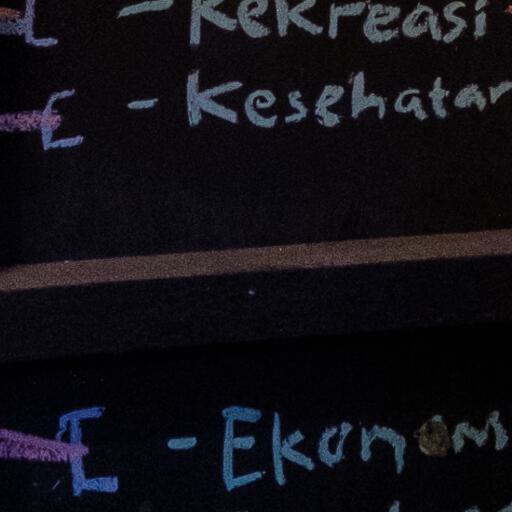 - Rekreasi
- Kesehatan
- Ekonom